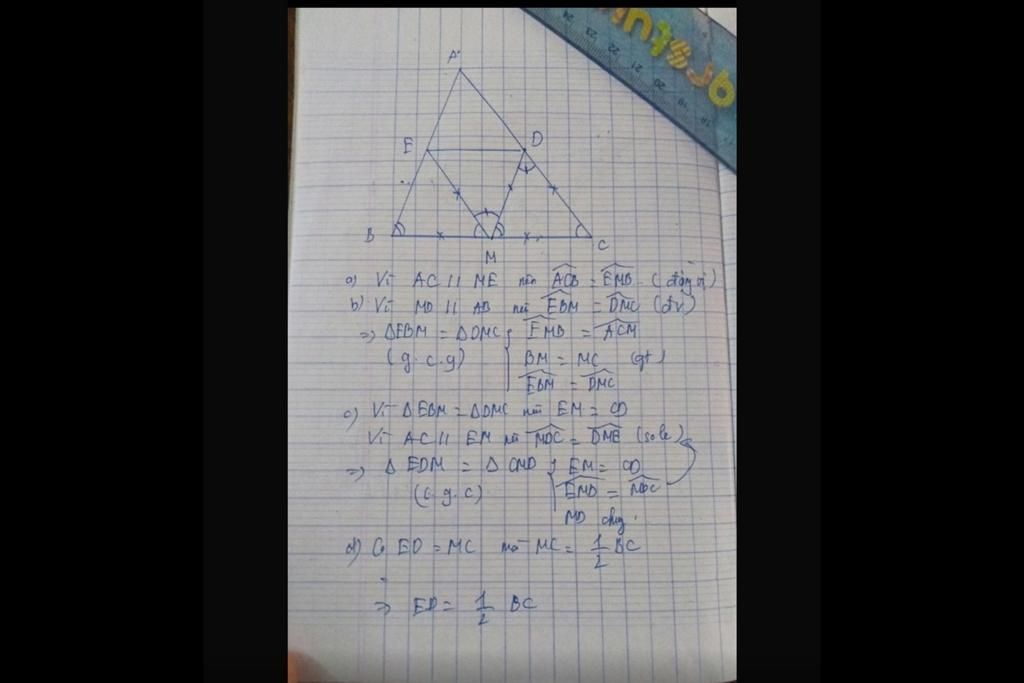 A
E
D
B
M
C
a) Vì AC // ME nên ACB = EMB (đồng vị)
b) Vì MD // AB nên EBM = DMC (đv)
=> ΔEBM = ΔDMC { EMB = ACM
(g.c.g) BM = MC (gt)
EBM = DMC
c) Vì ΔEBM = ΔDMC nên EM = CD
Vì AC // EM nên MDC = DME (sole)
=> ΔEDM = ΔCMD { EM = CD
(c.g.c) EMD = MDC
MD chung.
d) Có ED = MC mà MC = 1/2 BC
=> ED = 1/2 BC
24 23 22 21 20 19 18 17